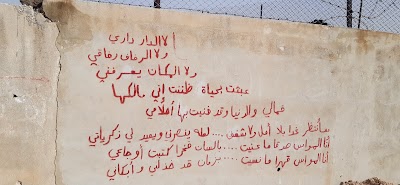 لا الدار داري
ولا الرفاق رفاقي
ولا المكان يعرفني
عبثت بحياة ظننت إني مالكها
فمالي والدنيا وقد فنيت بها أحلامي
سأنتظر غدا بلا أمل ولا شغف .... لعله ينصرني ويعيد لي ذكرياتي
أنا البواس صرحا ما عنيت .... بالسان فخرا كتبت أوجاعي
أنا البواس قهرا ما نعيت .... زمان قد خذلني وأبكاني